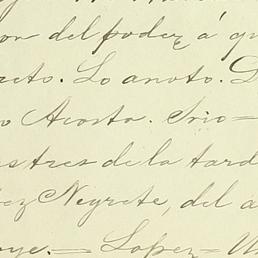 on del poder á qu
reto. Lo anoto. D
o Acosta. Srio=
as tres de la tard
ez Negrete, del a
oye.= Lopez= U